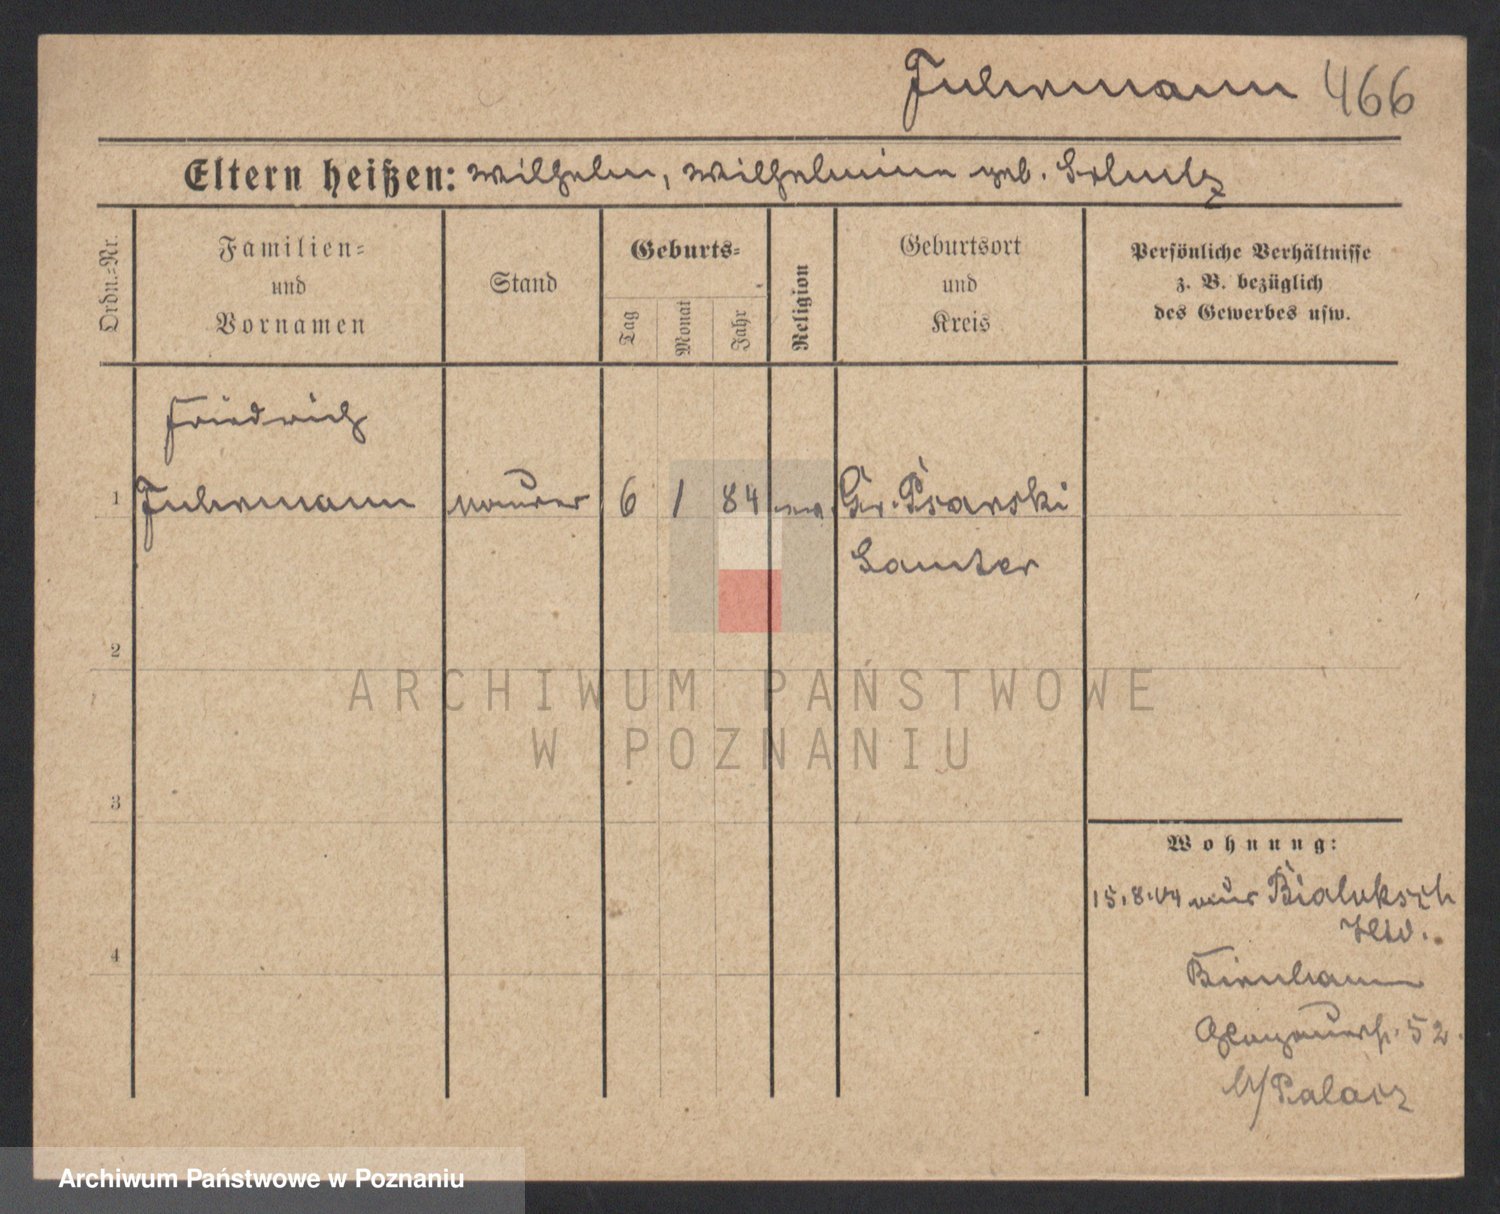 Fuhrmann 466
Eltern heißen: Wilhelm, Wilhelmine geb. Schulz
Ordn.=Nr.
Familien=
und
Vornamen
Stand
Geburts=
Tag
Monat
Jahr
Religion
Geburtsort
und
Kreis
Persönliche Verhältnisse
z. B. bezüglich
des Gewerbes usw.
Friedrich
1 Fuhrmann Maurer 6 1 84 ev. Gr. Psarski
Samter
2
ARCHIWUM PAŃSTWOWE
W POZNANIU
3
Wohnung:
15.8.04 aus
4
Birnbaum
Glogauerstr. 52.
Palacz
Archiwum Państwowe w Poznaniu